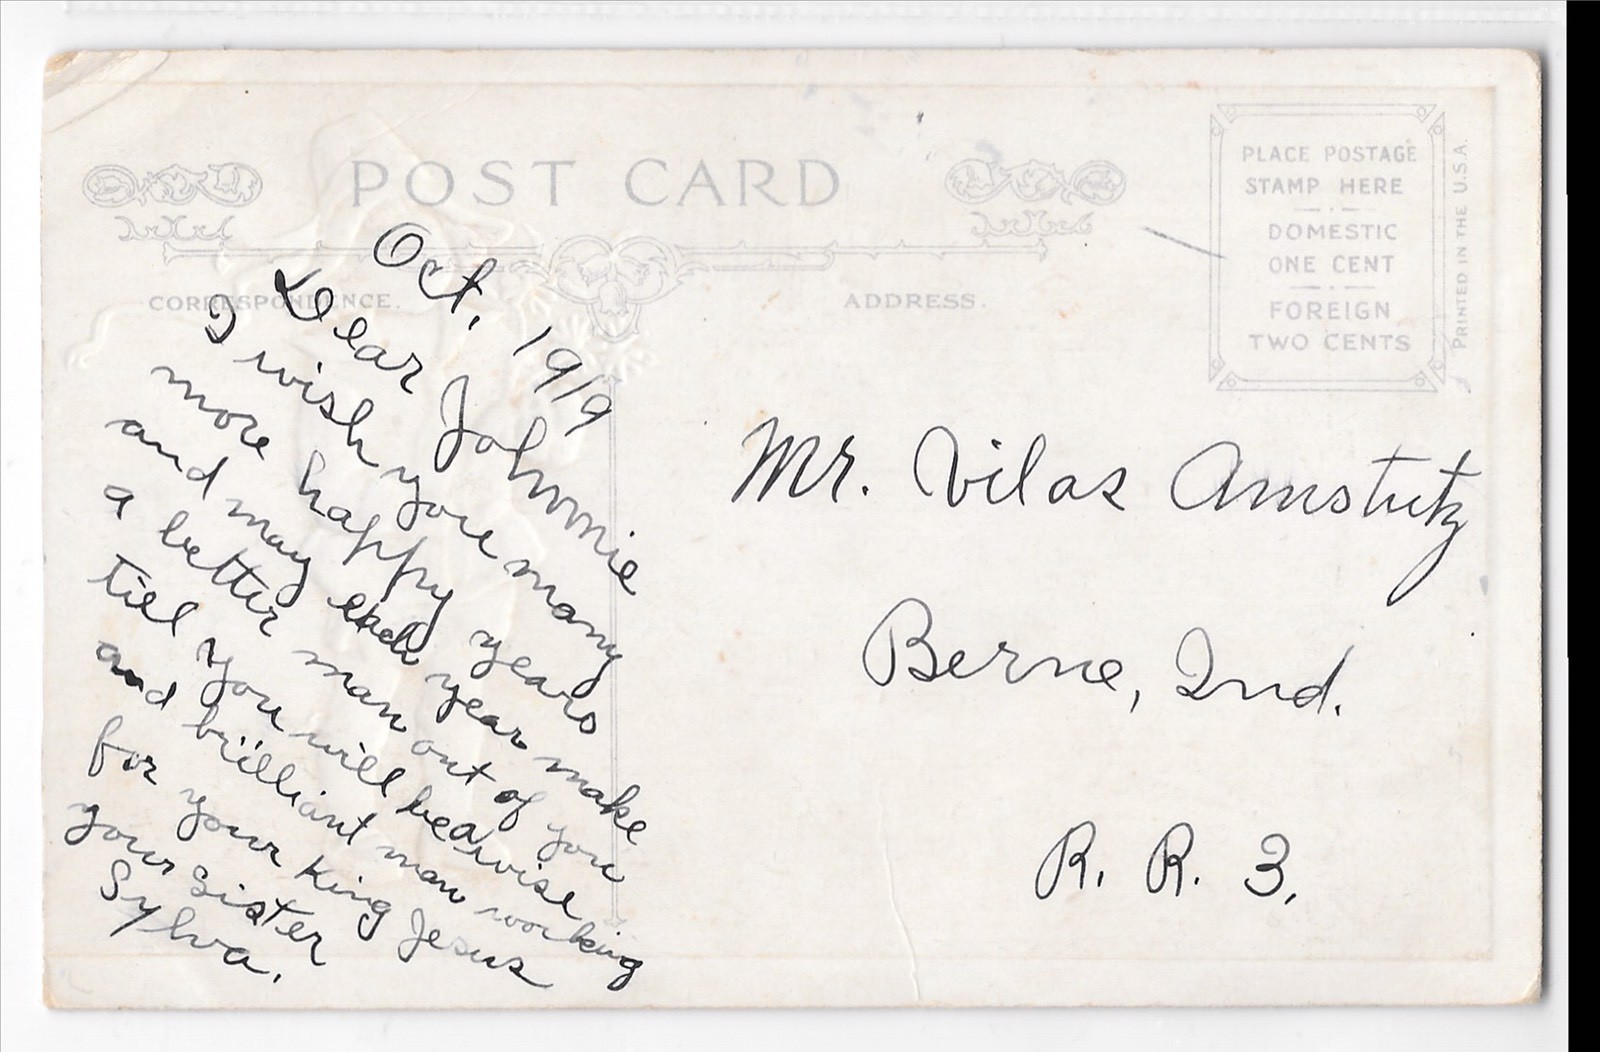 POST CARD
CORRESPONDENCE.
ADDRESS.
PLACE POSTAGE
STAMP HERE
DOMESTIC
ONE CENT
FOREIGN
TWO CENTS
PRINTED IN THE U.S.A.
Oct, 1919
Dear Johnnie
I wish you many
more happy years
and may each year make
a better man out of you
till you will be a wise
and brilliant man working
for your King Jesus
your sister
Sylva.
Mr. Vilas Amstutz
Berne, Ind.
R. R. 3.